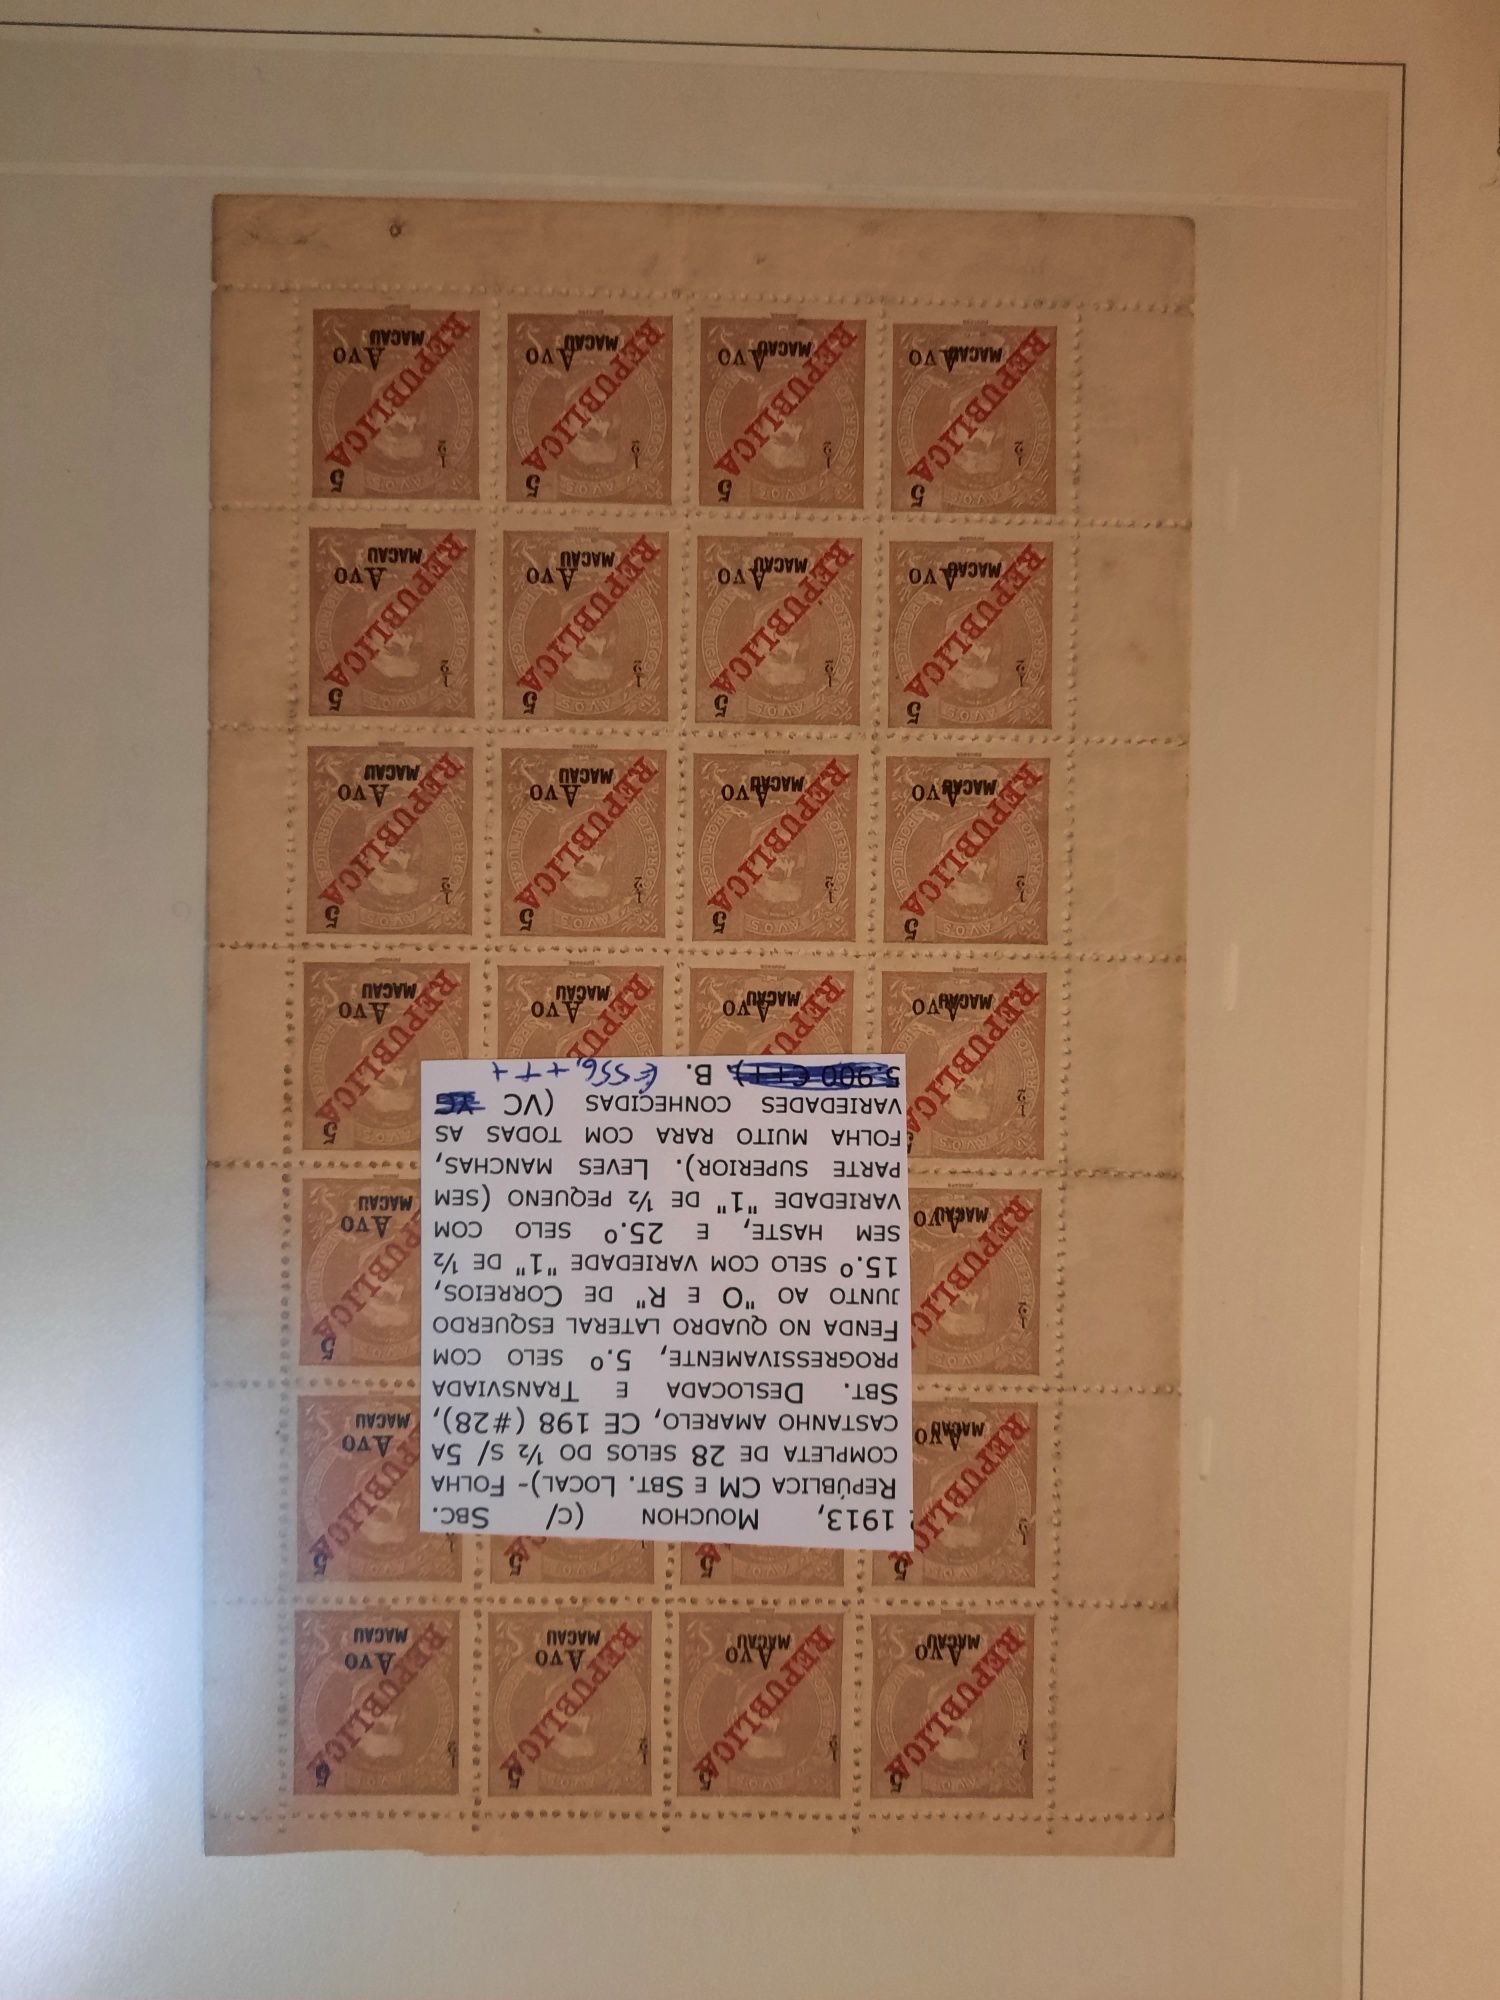 1913, MOUCHON (C/ SBC.
REPÚBLICA CM E SBT. LOCAL)- FOLHA
COMPLETA DE 28 SELOS DO ½ S/ 5A
CASTANHO AMARELO, CE 198 (#28),
SBT. DESLOCADA E TRANSVIADA
PROGRESSIVAMENTE, 5.º SELO COM
FENDA NO QUADRO LATERAL ESQUERDO
JUNTO AO "O E R" DE CORREIOS,
15.º SELO COM VARIEDADE "1" DE ½
SEM HASTE, E 25.º SELO COM
VARIEDADE "1" DE ½ PEQUENO (SEM
PARTE SUPERIOR). LEVES MANCHAS,
FOLHA MUITO RARA COM TODAS AS
VARIEDADES CONHECIDAS (VC
5.900 €++). B. €556,+++
5 ½
REPUBLICA
AVO
MACAU